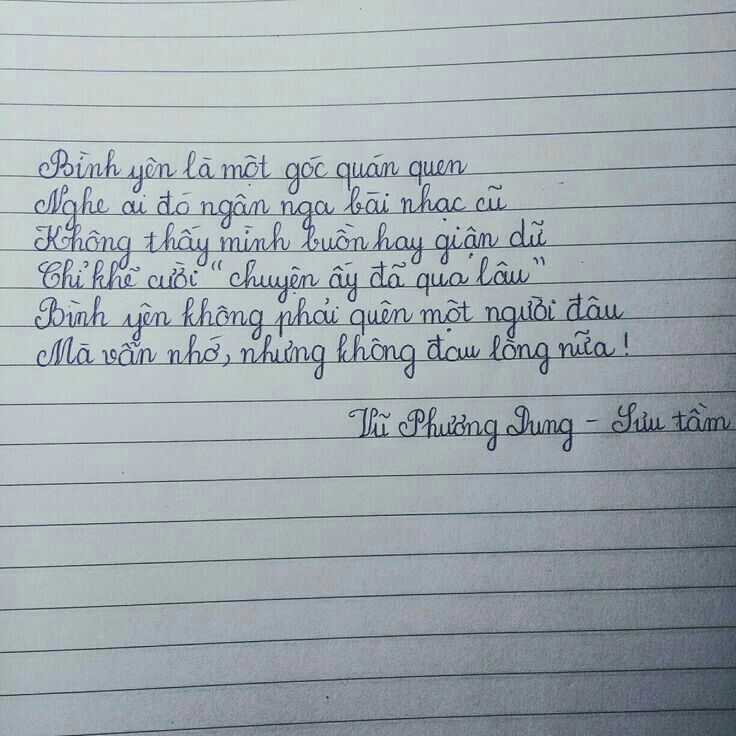 Bình yên là một góc quán quen
Nghe ai đó ngân nga bài nhạc cũ
Không thấy mình buồn hay giận dữ
Chỉ khẽ cười "chuyện ấy đã qua lâu"
Bình yên không phải quên một người đâu
Mà vẫn nhớ, nhưng không đau lòng nữa!
Vũ Phương Dung - Sưu tầm